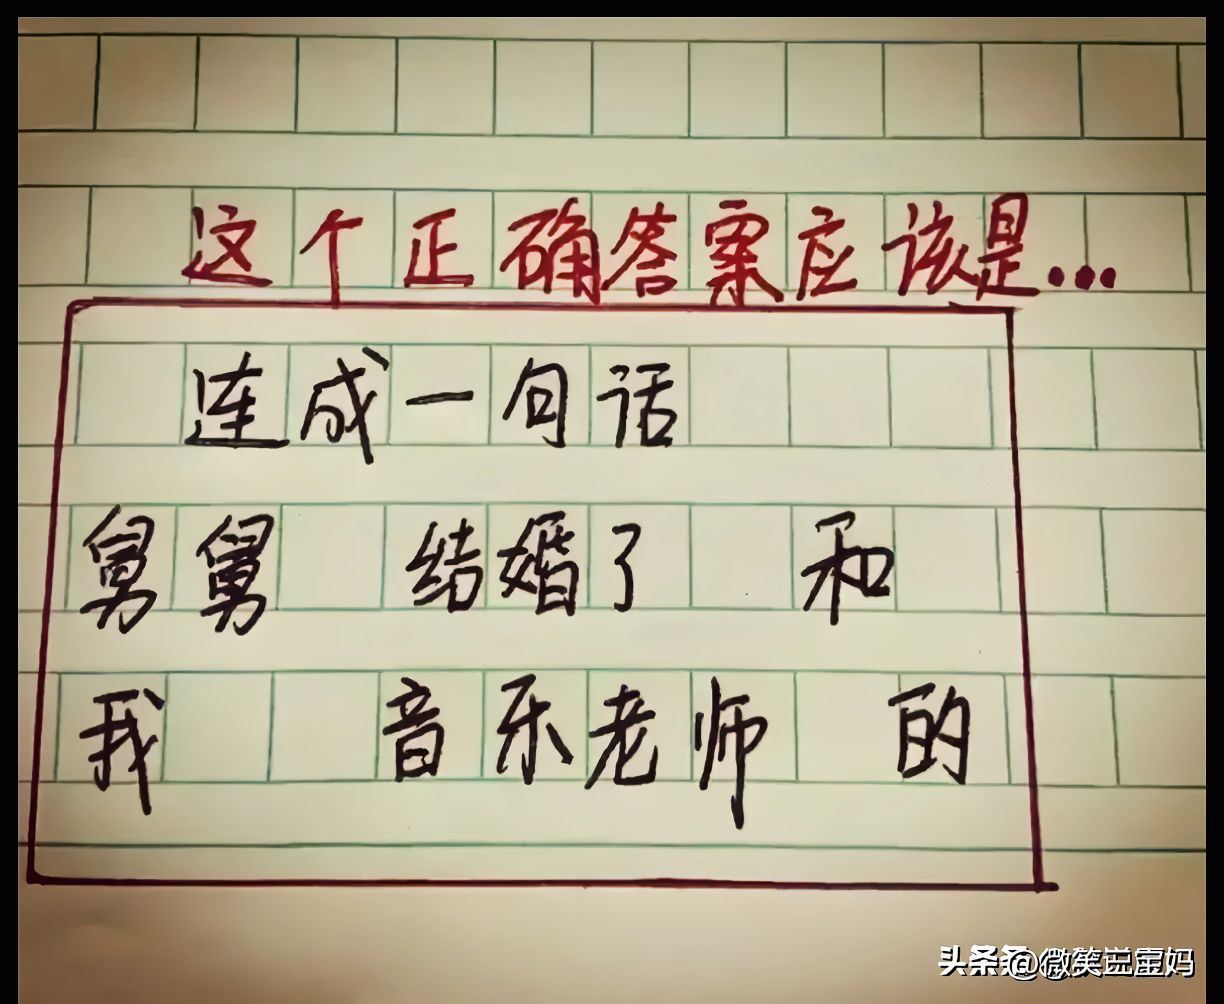 这个正确答案应该是...
连成一句话
舅舅 结婚了 和
我 音乐老师 的
头条 @微笑说霊妈